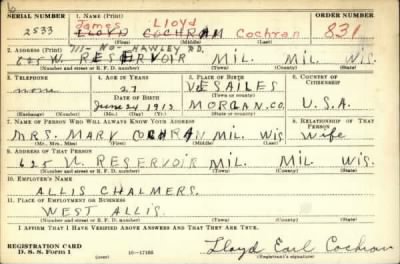 6
SERIAL NUMBER
1. NAME (Print)
ORDER NUMBER
James Lloyd
2533
LLOYD COCHRAN Cochran
831
(First) (Middle) (Last)
2. ADDRESS (Print)
711 - No - HAWLEY RD.
625 W. RESERVOIR MIL. MIL. WIS.
(Number and street or R. F. D. number) (Town) (County) (State)
3. TELEPHONE
4. AGE IN YEARS
5. PLACE OF BIRTH
6. COUNTRY OF CITIZENSHIP
none
27
VESAILES
DATE OF BIRTH
(Town or county)
June 24 1913
MORGAN.CO.
U.S.A.
(Exchange) (Number)
(Mo.) (Day) (Yr.)
(State or country)
7. NAME OF PERSON WHO WILL ALWAYS KNOW YOUR ADDRESS
8. RELATIONSHIP OF THAT PERSON
MRS. MARY COCHRAN MIL. WIS Wife
(Mr., Mrs., Miss) (First) (Middle) (Last)
9. ADDRESS OF THAT PERSON
625 W. RESERVOIR MIL. MIL. WIS.
(Number and street or R. F. D. number) (Town) (County) (State)
10. EMPLOYER'S NAME
ALLIS CHALMERS.
11. PLACE OF EMPLOYMENT OR BUSINESS
WEST ALLIS.
(Number and street or R. F. D. number) (Town) (County) (State)
I AFFIRM THAT I HAVE VERIFIED ABOVE ANSWERS AND THAT THEY ARE TRUE.
REGISTRATION CARD
D. S. S. Form 1
16-17105
Lloyd Earl Cochran
(Registrant's signature)